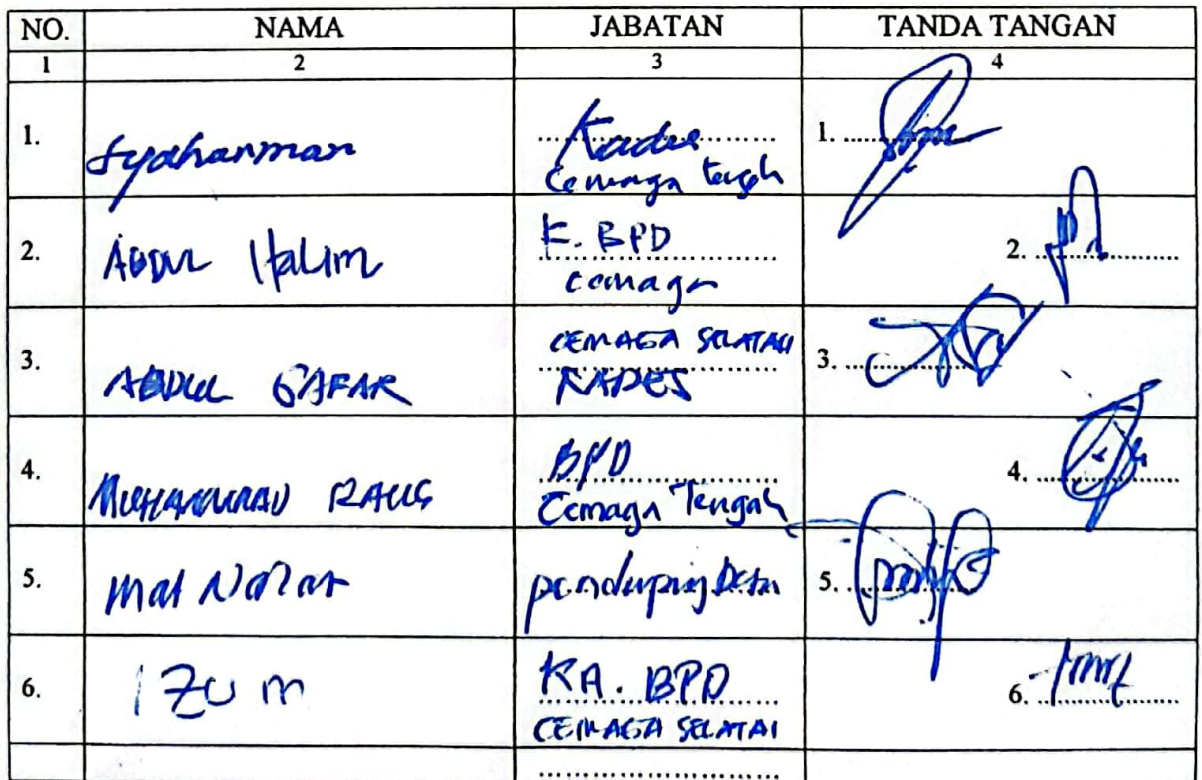 NO. NAMA JABATAN TANDA TANGAN
1 2 3 4
1. Syaharman Kades 1.
Cemaga tengah
2. ABDUL HALIM K. BPD 2.
cemaga
CEMAGA SELATAN
3. ABDUL GAFAR KADES 3.
4. MUHAMMAD RAUS BPD 4.
Cemaga Tengah
5. mat pendamping Desa 5.
6. IZUM KA. BPD 6.
CEMAGA SELATAN